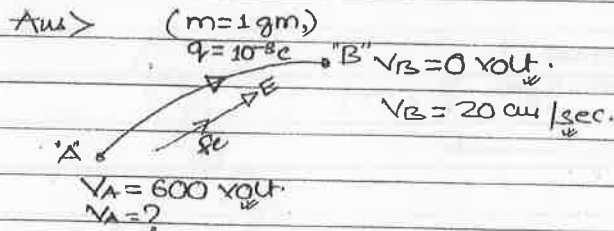 Ans> (m=1 gm,)
q=10⁻⁸c "B" VB=0 volt.
VB=20 cm/sec.
E
"A"
VA=600 volt.
VA=?